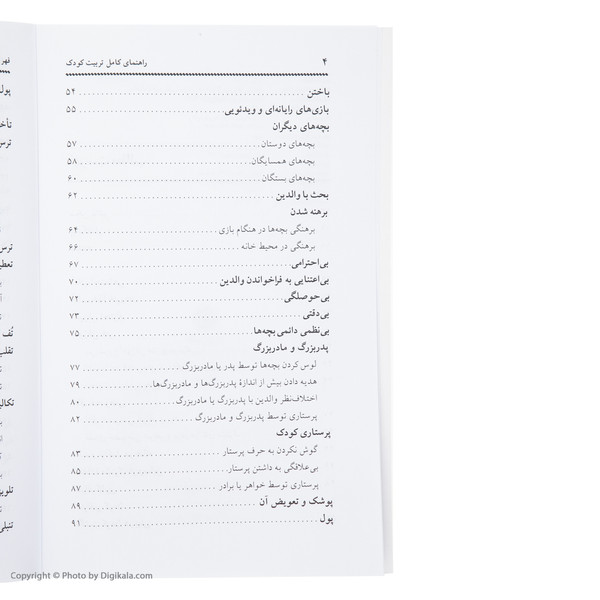 ۴ راهنمای کامل تربیت کودک
باختن ۵۴
بازی‌های رایانه‌ای و ویدئویی ۵۵
بچه‌های دیگران
بچه‌های دوستان ۵۷
بچه‌های همسایگان ۵۸
بچه‌های بستگان ۶۰
بحث با والدین ۶۲
برهنه شدن
برهنگی بچه‌ها در هنگام بازی ۶۴
برهنگی در محیط خانه ۶۶
بی‌احترامی ۶۷
بی‌اعتنایی به فراخواندن والدین ۷۰
بی‌حوصلگی ۷۲
بی‌دقتی ۷۳
بی‌نظمی دائمی بچه‌ها ۷۵
پدربزرگ و مادربزرگ
لوس کردن بچه‌ها توسط پدر یا مادربزرگ ۷۷
هدیه دادن بیش از اندازهٔ پدربزرگ‌ها و مادربزرگ‌ها ۷۹
اختلاف‌نظر والدین با پدربزرگ یا مادربزرگ ۸۰
پرستاری توسط پدربزرگ و مادربزرگ ۸۲
پرستاری کودک
گوش نکردن به حرف پرستار ۸۳
بی‌علاقگی به داشتن پرستار ۸۵
پرستاری توسط خواهر یا برادر ۸۷
پوشک و تعویض آن ۸۹
پول ۹۱
پول
ترس
تُف
تقلب
تنبلی
Copyright © Photo by Digikala.com